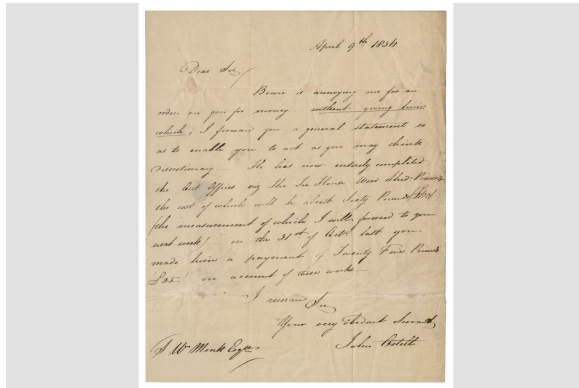 April 9th 1836
Dear Sir,
Bowie is annoying me for an
order on you for money without giving him
which, I forward you a general statement so
as to enable you to act as you may think
He has now entirely completed
the Out Offices viz The Ice House Wood Shed
the cost of which will be about Sixty Pounds (£60)
(the measurement of which I will forward to you
next week). On the 31st of Octr last you
made him a payment of Twenty Five Pounds
£25 on account of these works
I remain Sir
Your very obedient Servant,
John
Monk Esqre